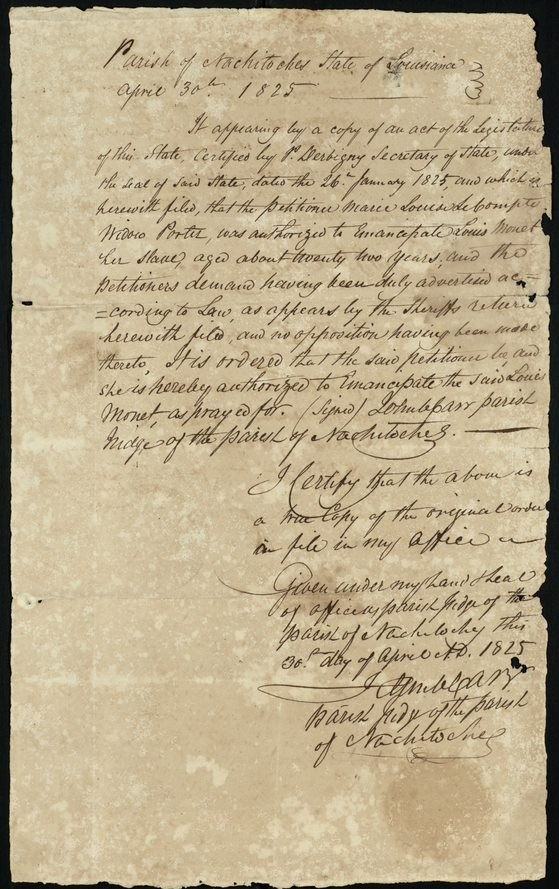 Parish of Nachitoches State of Louisiana
april 30th 1825
It appearing by a copy of an act of the Legislature
of this State, Certified by P. Derbigny Secretary of State, under
the seal of said State, dated the 26th January 1825, and which is
herewith filed, that the Petitioner Marie Louise Le Compte
Widow Porter, was authorized to Emancipate Louis Monet
her slave, aged about twenty two years, and the
Petitioners demand having been duly advertised ac=
=cording to Law, as appears by the Sheriffs return
herewith filed, and no opposition having been made
thereto, it is ordered that the said petitioner be and
she is hereby authorized to Emancipate the said Louis
Monet, as prayed for. (Signed) John C Carr parish
Judge of the parish of Nachitoches.
I Certify that the above is
a true Copy of the original order
on file in my office
Given under my hand & seal
of office as parish Judge of the
parish of Nachitoches this
30th day of April AD. 1825
John C Carr
parish Judge of the parish
of Nachitoches